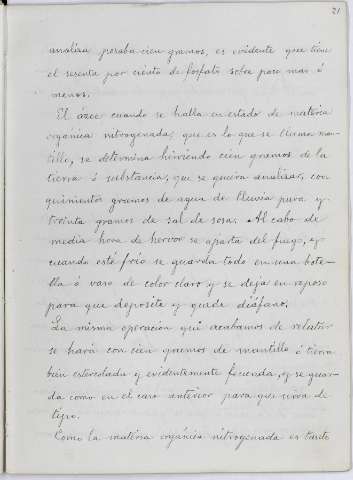 21
analiza pesaba cien gramos, es evidente que tiene
el sesenta por ciento de fosfato sobre poco mas ó
menos.
El ázoe cuando se halla en estado de materia
orgánica nitrogenada, que es lo que se llama man-
tillo, se determina hirviendo cien gramos de la
tierra ó substancia, que se quiera analizar, con
quinientos gramos de agua de lluvia pura y
treinta gramos de sal de sosa. Al cabo de
media hora de hervor se aparta del fuego, y
cuando esté frio se guarda todo en una bote-
lla ó vaso de color claro y se deja en reposo
para que deposite y quede diáfano.
La misma operacion que acabamos de relatar
se hará con cien gramos de mantillo ó tierra
bien estercolada y evidentemente fecunda, y se guar-
da como en el caso anterior para que sirva de
tipo.
Como la materia orgánica nitrogenada es tanto